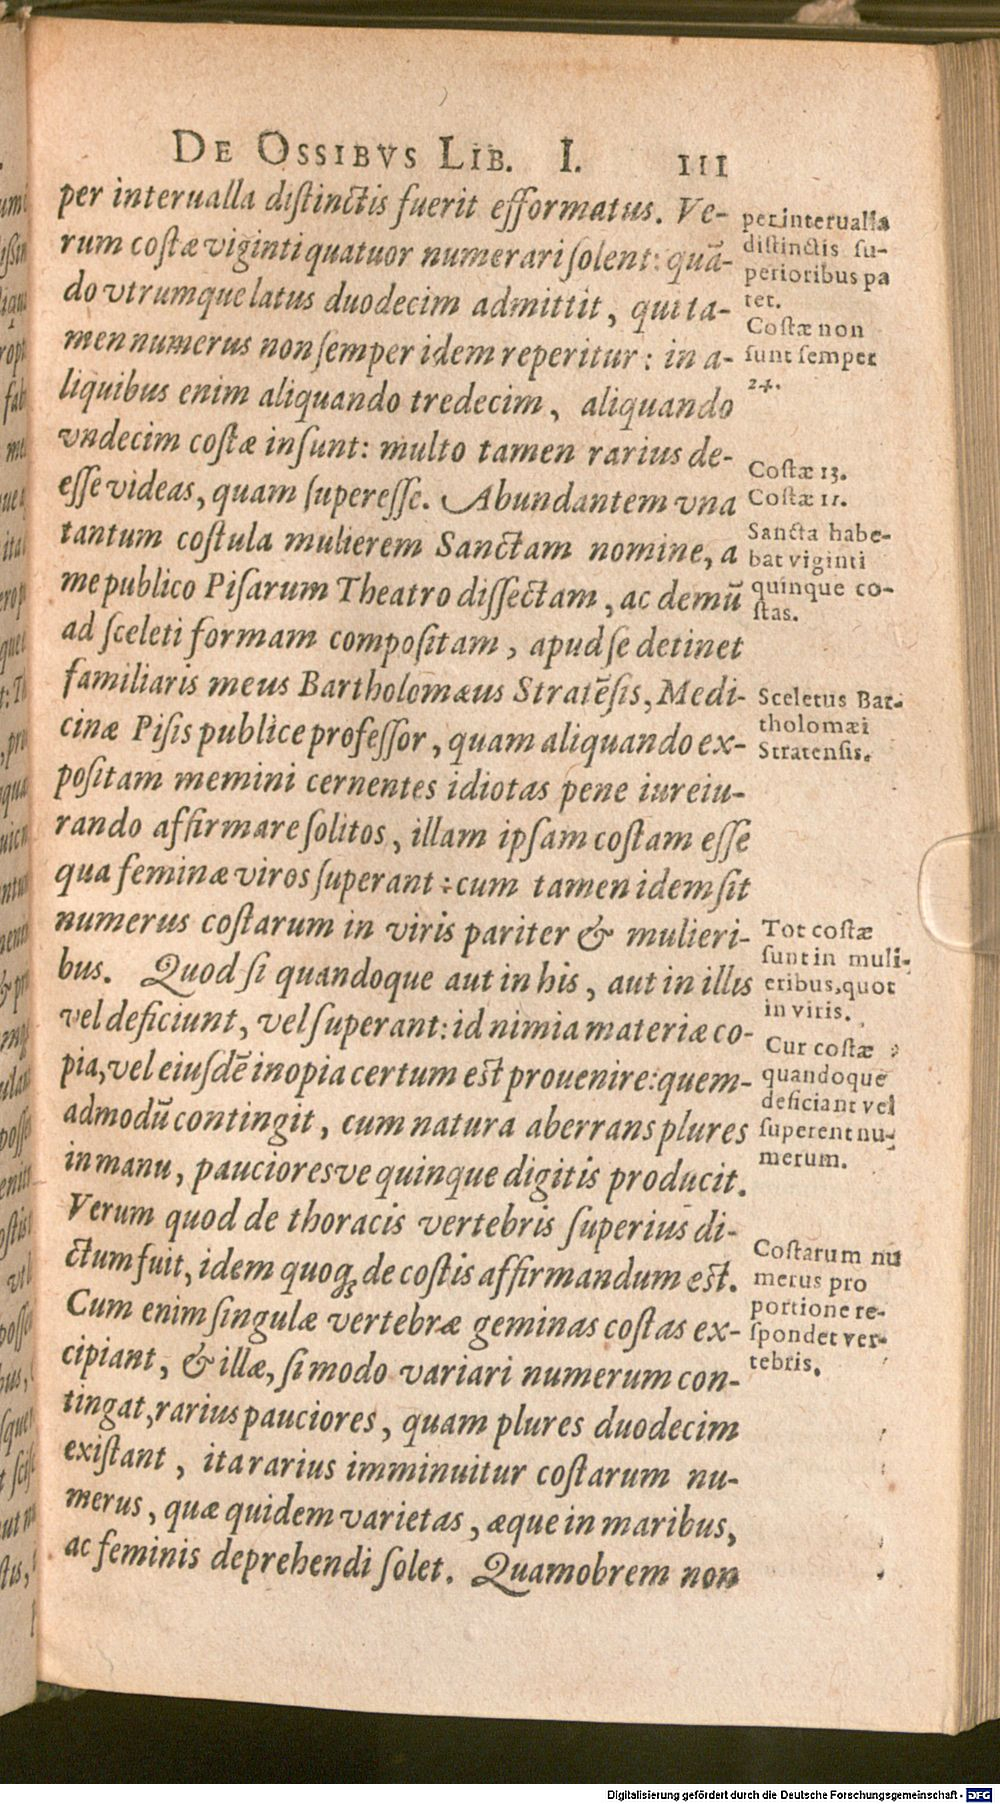 DE OSSIBVS LIB. I. 111
per interualla diſtinctis fuerit efformatus. Ve-
rum coſtæ viginti quatuor numerari ſolent: quā-
do vtrumque latus duodecim admittit, qui ta-
men numerus non ſemper idem reperitur: in a-
liquibus enim aliquando tredecim, aliquando
vndecim coſtæ inſunt: multo tamen rarius de-
eſſe videas, quam ſupereſſe. Abundantem vna
tantum coſtula mulierem Sanctam nomine, a
me publico Piſarum Theatro diſſectam, ac demū
ad ſceleti formam compoſitam, apud ſe detinet
familiaris meus Bartholomæus Stratēſis, Medi-
cinæ Piſis publice profeſſor, quam aliquando ex-
poſitam memini cernentes idiotas pene iureiu-
rando affirmare ſolitos, illam ipſam coſtam eſſe
qua feminæ viros ſuperant: cum tamen idem ſit
numerus coſtarum in viris pariter & mulieri-
bus. Quod ſi quandoque aut in his, aut in illis
vel deficiunt, vel ſuperant: id nimia materiæ co-
pia, vel eiuſdē inopia certum eſt prouenire: quem-
admodū contingit, cum natura aberrans plures
in manu, paucioresve quinque digitis producit.
Verum quod de thoracis vertebris ſuperius di-
ctum fuit, idem quoqʒ de coſtis affirmandum eſt.
Cum enim ſingulæ vertebræ geminas coſtas ex-
cipiant, & illæ, ſi modo variari numerum con-
tingat, rarius pauciores, quam plures duodecim
exiſtant, ita rarius imminuitur coſtarum nu-
merus, quæ quidem varietas, æque in maribus,
ac feminis deprehendi ſolet. Quamobrem non
per interualla
diſtinctis ſu-
perioribus pa
tet.
Coſtæ non
ſunt ſemper
24.
Coſtæ 13.
Coſtæ 11.
Sancta habe-
bat viginti
quinque co-
ſtas.
Sceletus Bar-
tholomæi
Stratenſis.
Tot coſtæ
ſunt in muli-
eribus, quot
in viris.
Cur coſtæ
quandoque
deficiant vel
ſuperent nu-
merum.
Coſtarum nu
merus pro
portione re-
ſpondet ver-
tebris.
Digitalisierung gefördert durch die Deutsche Forschungsgemeinschaft - DFG